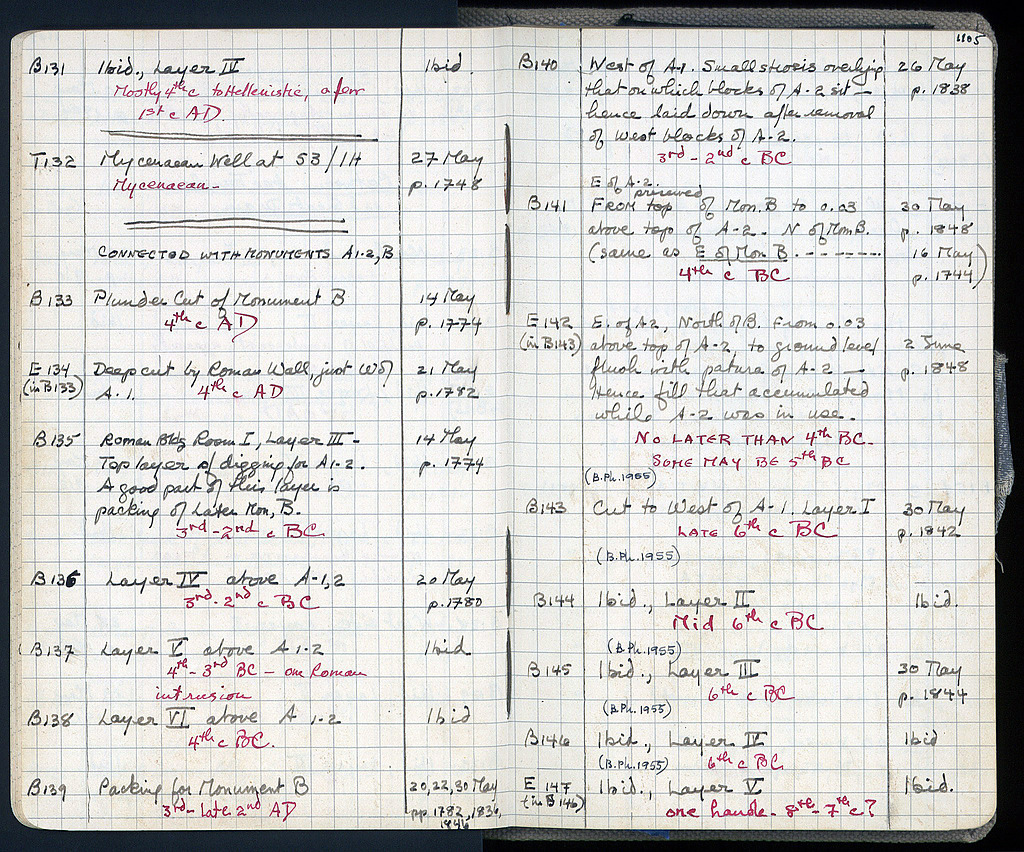 B131 Ibid., Layer IV Ibid.
Mostly 4th c to Hellenistic, a few
1st c AD.
T132 Mycenaean Well at 53/1H 27 May
Mycenaean- p. 1748
CONNECTED WITH MONUMENTS A1-2, B
B133 Plunder Cut of Monument B 14 May
4th c AD p. 1774
E 134 Deep cut by Roman Wall, just W of 21 May
(in B133) A-1. 4th c AD p. 1782
B135 Roman Bldg Room I, Layer III- 14 May
Top layer of digging for A1-2. p. 1774
A good part of this layer is
packing of later Mon, B.
3rd-2nd c BC.
B136 Layer IV above A-1,2 20 May
3rd-2nd c BC p. 1780
B137 Layer V above A 1-2 Ibid
4th-3rd BC - one Roman
intrusion
B138 Layer VI above A 1-2 Ibid
4th c BC.
B139 Packing for Monument B 20, 22, 30 May
3rd-late 2nd AD pp. 1782, 1836,
1846
1105
B140 West of A-1. Small stereo overlying 26 May
that on which blocks of A-2 sit - p. 1838
hence laid down after removal
of West blocks of A-2.
3rd-2nd c BC
E of A-2.
preserved
B141 FROM top of Mon. B to 0.03 30 May
above top of A-2. N of Mon B. p. 1848
(same as E of Mon B. - - - - - - - 16 May
4th c BC p. 1744)
E 142 E. of A2, North of B. From 0.03
(in B143) above top of A-2 to ground level 2 June
flush with patura of A-2 - p. 1848
Hence fill that accumulated
while A-2 was in use.
NO LATER THAN 4th BC.
SOME MAY BE 5th BC
(B.Ph. 1955)
B143 Cut to West of A-1. Layer I 30 May
LATE 6th c BC p. 1842
(B.Ph. 1955)
B144 Ibid., Layer II Ibid.
Mid 6th c BC
(B.Ph. 1955)
B145 Ibid., Layer III 30 May
6th c BC p. 1844
(B.Ph. 1955)
B146 Ibid., Layer IV Ibid
(B.Ph. 1955) 6th c BC.
E 147 Ibid., Layer V Ibid.
(in B146) one handle- 8th-7th c?